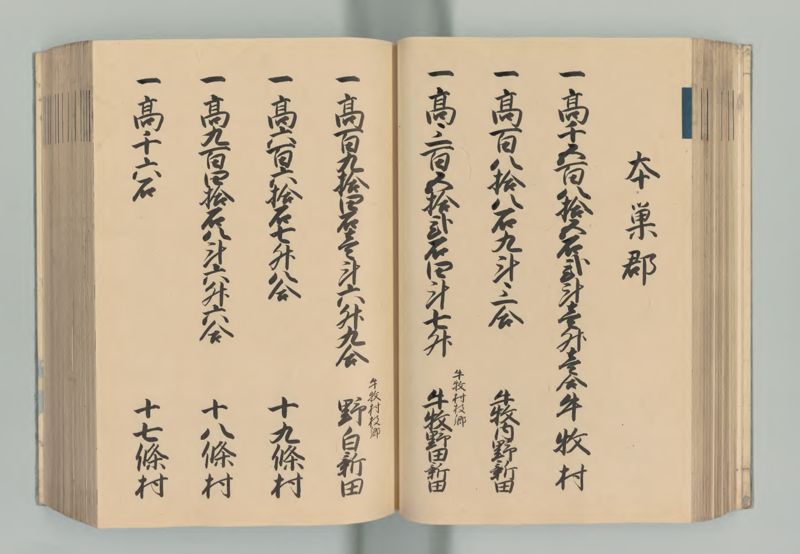 本巣郡
一高千六百八拾五石弐斗壱升壱合 牛牧村
一高百八拾八石九斗三合 牛牧内野新田
一高三百五拾弐石四斗七升 牛牧村枝郷 牛牧野田新田
一高百九拾四石壱斗六升九合 牛牧村枝郷 野白新田
一高六百六拾石七升八合 十九條村
一高九百四拾石八斗六升六合 十八條村
一高千六石 十七條村